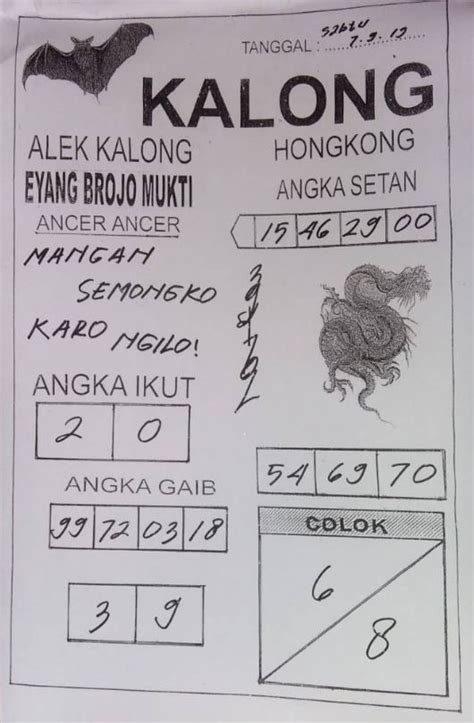 TANGGAL : Sabtu 7.9.19
KALONG
ALEK KALONG
EYANG BROJO MUKTI
ANCER ANCER
MANGAN
SEMONGKO
KARO NGILO!
HONGKONG
ANGKA SETAN
15 46 29 00
ANGKA IKUT
2 0
ANGKA GAIB
99 72 03 18
3 9
54 69 70
COLOK
6
8